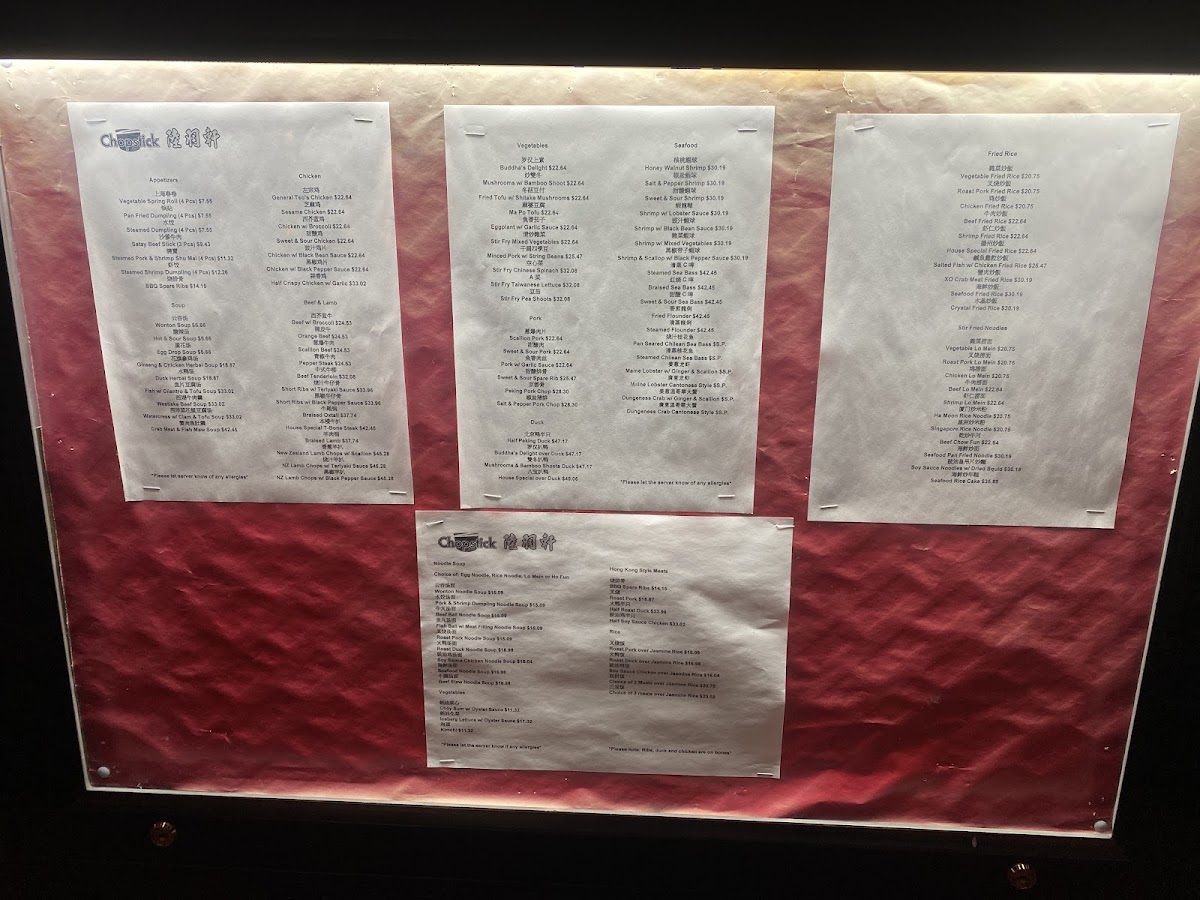 Chopstick 陸羽軒
Appetizers
上海春卷
Vegetable Spring Roll (4 Pcs) $7.55
锅贴
Pan Fried Dumpling (4 Pcs) $7.55
水饺
Steamed Dumpling (4 Pcs) $7.55
沙爹牛肉
Satay Beef Stick (3 Pcs) $9.43
燒賣
Steamed Pork & Shrimp Shu Mai (4 Pcs) $11.32
虾饺
Steamed Shrimp Dumpling (4 Pcs) $12.26
烧排骨
BBQ Spare Ribs $14.15
Soup
云吞汤
Wonton Soup $5.66
酸辣汤
Hot & Sour Soup $5.66
蛋花汤
Egg Drop Soup $5.66
Ginseng & Chicken Herbal Soup $18.87
Duck Herbal Soup $18.87
Fish w/ Cilantro & Tofu Soup $33.02
西湖牛肉羹
Westlake Beef Soup $33.02
Watercress w/ Clam & Tofu Soup $33.02
蟹肉魚肚羹
Crab Meat & Fish Maw Soup $42.45
*Please let server know of any allergies*
Chicken
左宗鸡
General Tso's Chicken $22.64
芝麻鸡
Sesame Chicken $22.64
西芥蓝鸡
Chicken w/ Broccoli $22.64
甜酸鸡
Sweet & Sour Chicken $22.64
豉汁鸡片
Chicken w/ Black Bean Sauce $22.64
黑椒鸡片
Chicken w/ Black Pepper Sauce $22.64
蒜香鸡
Half Crispy Chicken w/ Garlic $33.02
Beef & Lamb
西芥蓝牛
Beef w/ Broccoli $24.53
陳皮牛
Orange Beef $24.53
葱爆牛肉
Scallion Beef $24.53
青椒牛肉
Pepper Steak $24.53
中式牛柳
Beef Tenderloin $32.08
烧汁牛仔骨
Short Ribs w/ Teriyaki Sauce $33.96
黑椒牛仔骨
Short Ribs w/ Black Pepper Sauce $33.96
Braised Oxtail $37.74
本楼牛扒
House Special T-Bone Steak $42.45
Braised Lamb $37.74
New Zealand Lamb Chops w/ Scallion $45.28
NZ Lamb Chops w/ Teriyaki Sauce $45.28
NZ Lamb Chops w/ Black Pepper Sauce $45.28
Vegetables
罗汉上素
Buddha's Delight $22.64
炒雙冬
Mushrooms w/ Bamboo Shoot $22.64
冬菇豆付
Fried Tofu w/ Shitake Mushrooms $22.64
麻婆豆腐
Ma Po Tofu $22.64
魚香茄子
Eggplant w/ Garlic Sauce $22.64
清炒雜菜
Stir Fry Mixed Vegetables $22.64
干煸四季豆
Minced Pork w/ String Beans $25.47
空心菜
Stir Fry Chinese Spinach $32.08
A 菜
Stir Fry Taiwanese Lettuce $32.08
豆苗
Stir Fry Pea Shoots $32.08
Pork
葱爆肉片
Scallion Pork $22.64
甜酸肉
Sweet & Sour Pork $22.64
魚香肉丝
Pork w/ Garlic Sauce $22.64
甜酸排骨
Sweet & Sour Spare Rib $25.47
京都骨
Peking Pork Chop $28.30
椒盐猪扒
Salt & Pepper Pork Chop $28.30
Duck
北京鸭半只
Half Peking Duck $47.17
罗汉扒鸭
Buddha's Delight over Duck $47.17
雙冬扒鸭
Mushrooms & Bamboo Shoots Duck $47.17
八宝扒鸭
House Special over Duck $49.06
Seafood
核桃蝦球
Honey Walnut Shrimp $30.19
椒盐蝦球
Salt & Pepper Shrimp $30.19
甜酸蝦球
Sweet & Sour Shrimp $30.19
蝦龍糊
Shrimp w/ Lobster Sauce $30.19
豉汁蝦球
Shrimp w/ Black Bean Sauce $30.19
雜菜蝦球
Shrimp w/ Mixed Vegetables $30.19
黑椒带子蝦球
Shrimp & Scallop w/ Black Pepper Sauce $30.19
Steamed Sea Bass $42.45
Braised Sea Bass $42.45
Sweet & Sour Sea Bass $42.45
Fried Flounder $42.45
Steamed Flounder $42.45
Pan Seared Chilean Sea Bass $S.P.
Steamed Chilean Sea Bass $S.P.
Maine Lobster w/ Ginger & Scallion $S.P.
Maine Lobster Cantonese Style $S.P.
Dungenese Crab w/ Ginger & Scallion $S.P.
Dungenese Crab Cantonese Style $S.P.
*Please let the server know of any allergies*
Fried Rice
雜菜炒飯
Vegetable Fried Rice $20.75
叉烧炒飯
Roast Pork Fried Rice $20.75
鸡炒飯
Chicken Fried Rice $20.75
牛肉炒飯
Beef Fried Rice $22.64
虾仁炒飯
Shrimp Fried Rice $22.64
揚州炒飯
House Special Fried Rice $22.64
鹹魚雞粒炒飯
Salted Fish w/ Chicken Fried Rice $25.47
蟹肉炒飯
XO Crab Meat Fried Rice $30.19
海鮮炒飯
Seafood Fried Rice $30.19
水晶炒飯
Crystal Fried Rice $30.19
Stir Fried Noodles
雜菜捞面
Vegetable Lo Mein $20.75
叉烧捞面
Roast Pork Lo Mein $20.75
鸡捞面
Chicken Lo Mein $20.75
牛肉捞面
Beef Lo Mein $22.64
虾仁捞面
Shrimp Lo Mein $22.64
厦门炒米粉
Ha Moon Rice Noodle $20.75
星洲炒米粉
Singapore Rice Noodle $20.75
乾炒牛河
Beef Chow Fun $22.64
海鮮炒面
Seafood Pan Fried Noodle $30.19
Soy Sauce Noodles w/ Dried Squid $30.19
海鮮炒年糕
Seafood Rice Cake $35.88
Chopstick 陸羽軒
Noodle Soup
Choice of: Egg Noodle, Rice Noodle, Lo Mein or Ho Fun
云吞汤面
Wonton Noodle Soup $15.09
水饺汤面
Pork & Shrimp Dumpling Noodle Soup $15.09
牛丸汤面
Beef Ball Noodle Soup $15.09
魚丸汤面
Fish Ball w/ Meat Filling Noodle Soup $15.09
叉烧汤面
Roast Pork Noodle Soup $15.09
火鸭汤面
Roast Duck Noodle Soup $16.98
豉油鸡汤面
Soy Sauce Chicken Noodle Soup $16.04
海鮮汤面
Seafood Noodle Soup $16.98
牛腩汤面
Beef Stew Noodle Soup $16.98
Vegetables
Choy Sum w/ Oyster Sauce $11.32
Iceberg Lettuce w/ Oyster Sauce $11.32
Kimchi $11.32
*Please let the server know if any allergies*
Hong Kong Style Meats
烧排骨
BBQ Spare Ribs $14.15
叉烧
Roast Pork $18.87
火鸭半只
Half Roast Duck $33.96
豉油鸡半只
Half Soy Sauce Chicken $33.02
Rice
叉烧饭
Roast Pork over Jasmine Rice $16.09
火鸭饭
Roast Duck over Jasmine Rice $16.98
豉油鸡饭
Soy Sauce Chicken over Jasmine Rice $16.04
双拼饭
Choice of 2 Meats over Jasmine Rice $20.75
三拼饭
Choice of 3 meats over Jasmine Rice $23.58
*Please note: Ribs, duck and chicken are on bones*